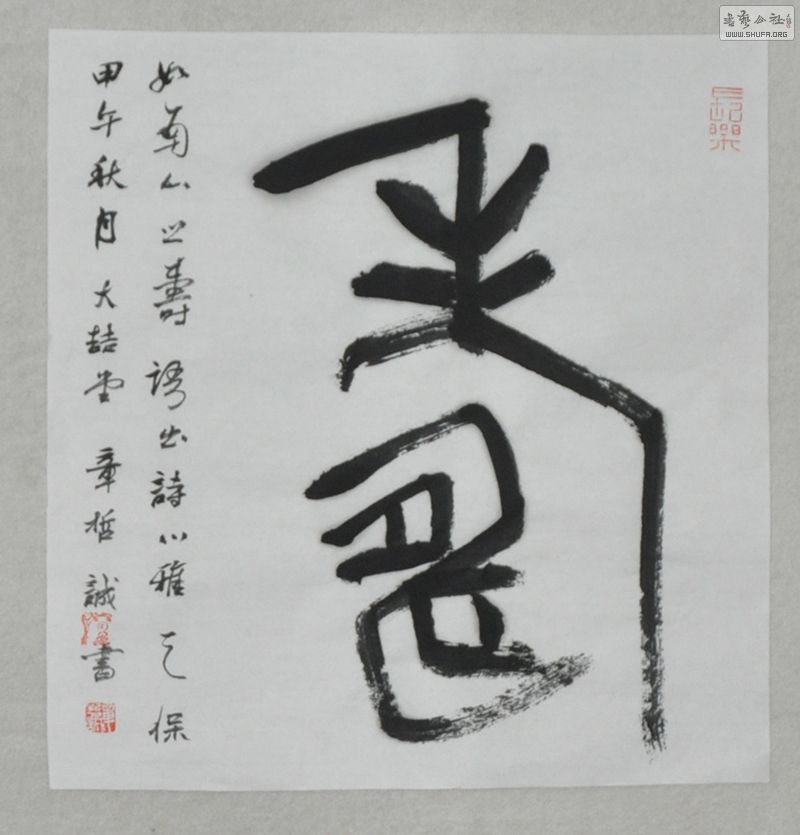 書藝公社
WWW.SHUFA.ORG
長樂
壽
如南山之壽語出詩小雅天保
甲午秋月大喆堂章哲誠書